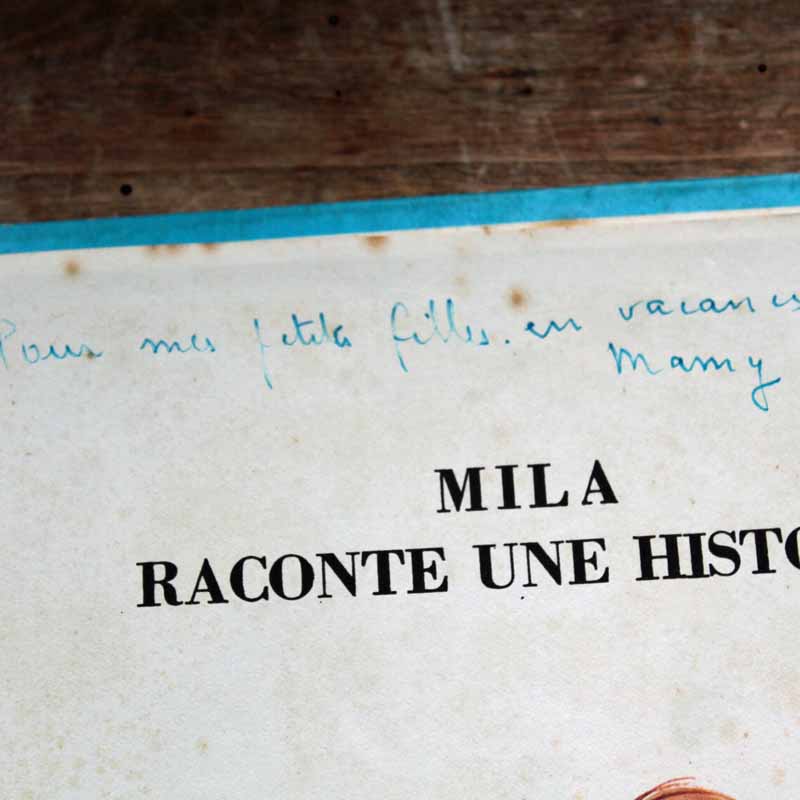 Pour mes petites filles. en vacances
Mamy
MILA
RACONTE UNE HISTO